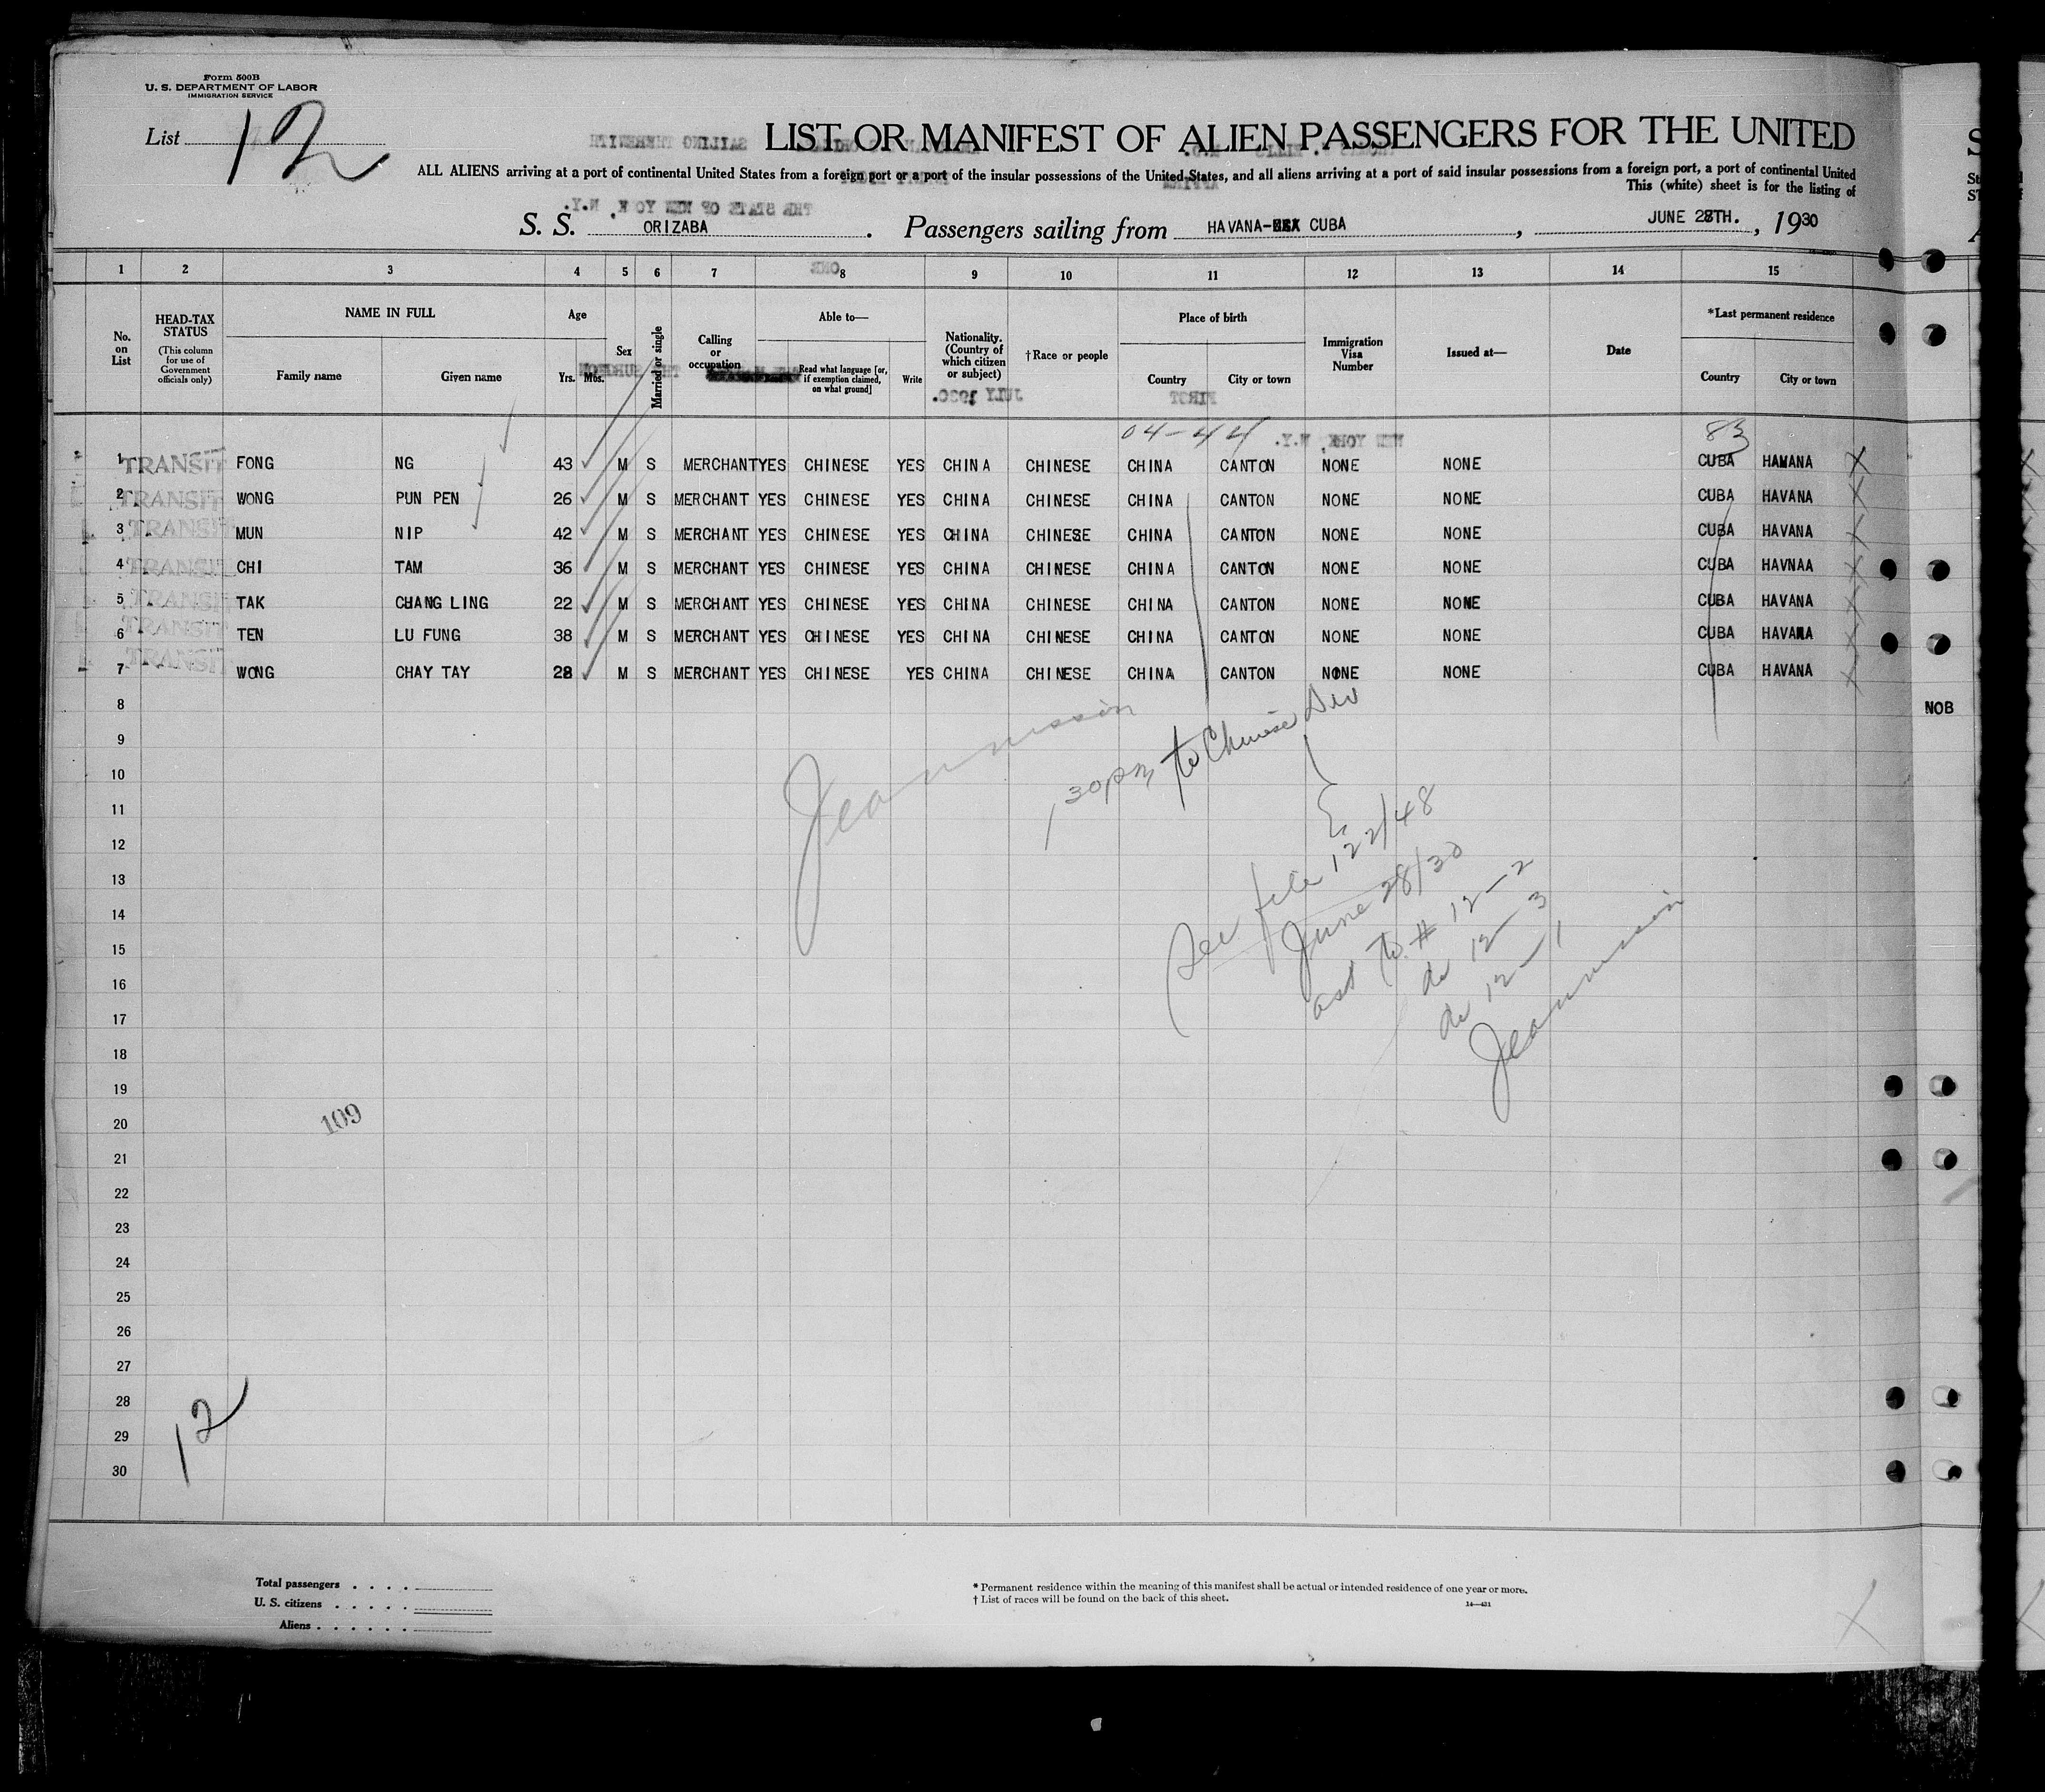 Form 500B
U. S. DEPARTMENT OF LABOR
IMMIGRATION SERVICE
List 12
LIST OR MANIFEST OF ALIEN PASSENGERS FOR THE UNITED
ALL ALIENS arriving at a port of continental United States from a foreign port or a port of the insular possessions of the United States, and all aliens arriving at a port of said insular possessions from a foreign port, a port of continental United
This (white) sheet is for the listing of
S. S. ORIZABA. Passengers sailing from HAVANA- CUBA, JUNE 28TH., 1930
1 2 3 4 5 6 7 8 9 10 11 12 13 14 15
No. on List
HEAD-TAX STATUS
(This column for use of Government officials only)
NAME IN FULL
Family name
Given name
Age
Yrs. Mos.
Sex
Married or single
Calling or occupation
Able to—
Read what language [or, if exemption claimed, on what ground]
Write
Nationality. (Country of which citizen or subject)
†Race or people
Place of birth
Country
City or town
Immigration Visa Number
Issued at—
Date
*Last permanent residence
Country
City or town
04-44
83
1 TRANSIT FONG NG 43 M S MERCHANT YES CHINESE YES CHINA CHINESE CHINA CANTON NONE NONE CUBA HAVANA X
2 TRANSIT WONG PUN PEN 26 M S MERCHANT YES CHINESE YES CHINA CHINESE CHINA CANTON NONE NONE CUBA HAVANA X
3 TRANSIT MUN NIP 42 M S MERCHANT YES CHINESE YES CHINA CHINESE CHINA CANTON NONE NONE CUBA HAVANA X
4 TRANSIT CHI TAM 36 M S MERCHANT YES CHINESE YES CHINA CHINESE CHINA CANTON NONE NONE CUBA HAVNAA X
5 TRANSIT TAK CHANG LING 22 M S MERCHANT YES CHINESE YES CHINA CHINESE CHINA CANTON NONE NONE CUBA HAVANA X
6 TRANSIT TEN LU FUNG 38 M S MERCHANT YES CHINESE YES CHINA CHINESE CHINA CANTON NONE NONE CUBA HAVANA X
7 TRANSIT WONG CHAY TAY 28 M S MERCHANT YES CHINESE YES CHINA CHINESE CHINA CANTON NONE NONE CUBA HAVANA X
8
NOB
9
10
11
12
13
14
15
16
17
18
19
20
21
22
23
24
25
26
27
28
29
30
130pm to Chinese Div
See file 122/48
June 28/30
as to # 12-2
do 12-3
do 12-1
109
12
Total passengers . . . .
U. S. citizens . . . . .
Aliens . . . . . .
* Permanent residence within the meaning of this manifest shall be actual or intended residence of one year or more.
† List of races will be found on the back of this sheet.
14—431